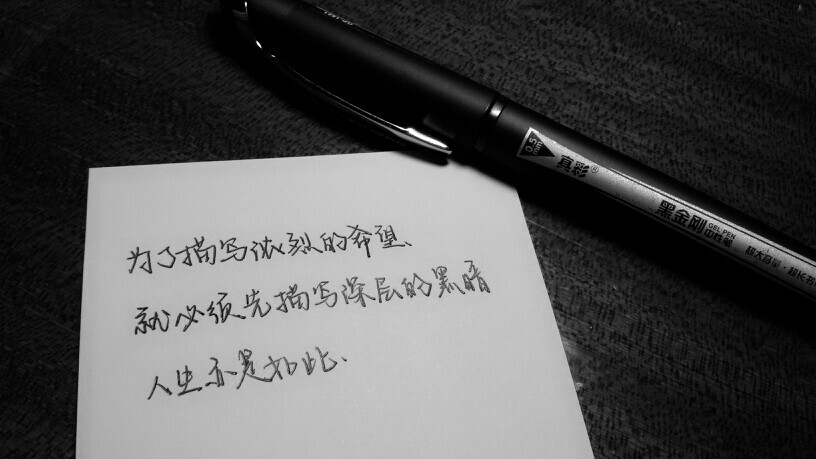 为了描写浓烈的希望、
就必须先描写深层的黑暗
人生亦是如此、
0.5
mm
真彩®
黑金刚
GEL PEN
中性笔